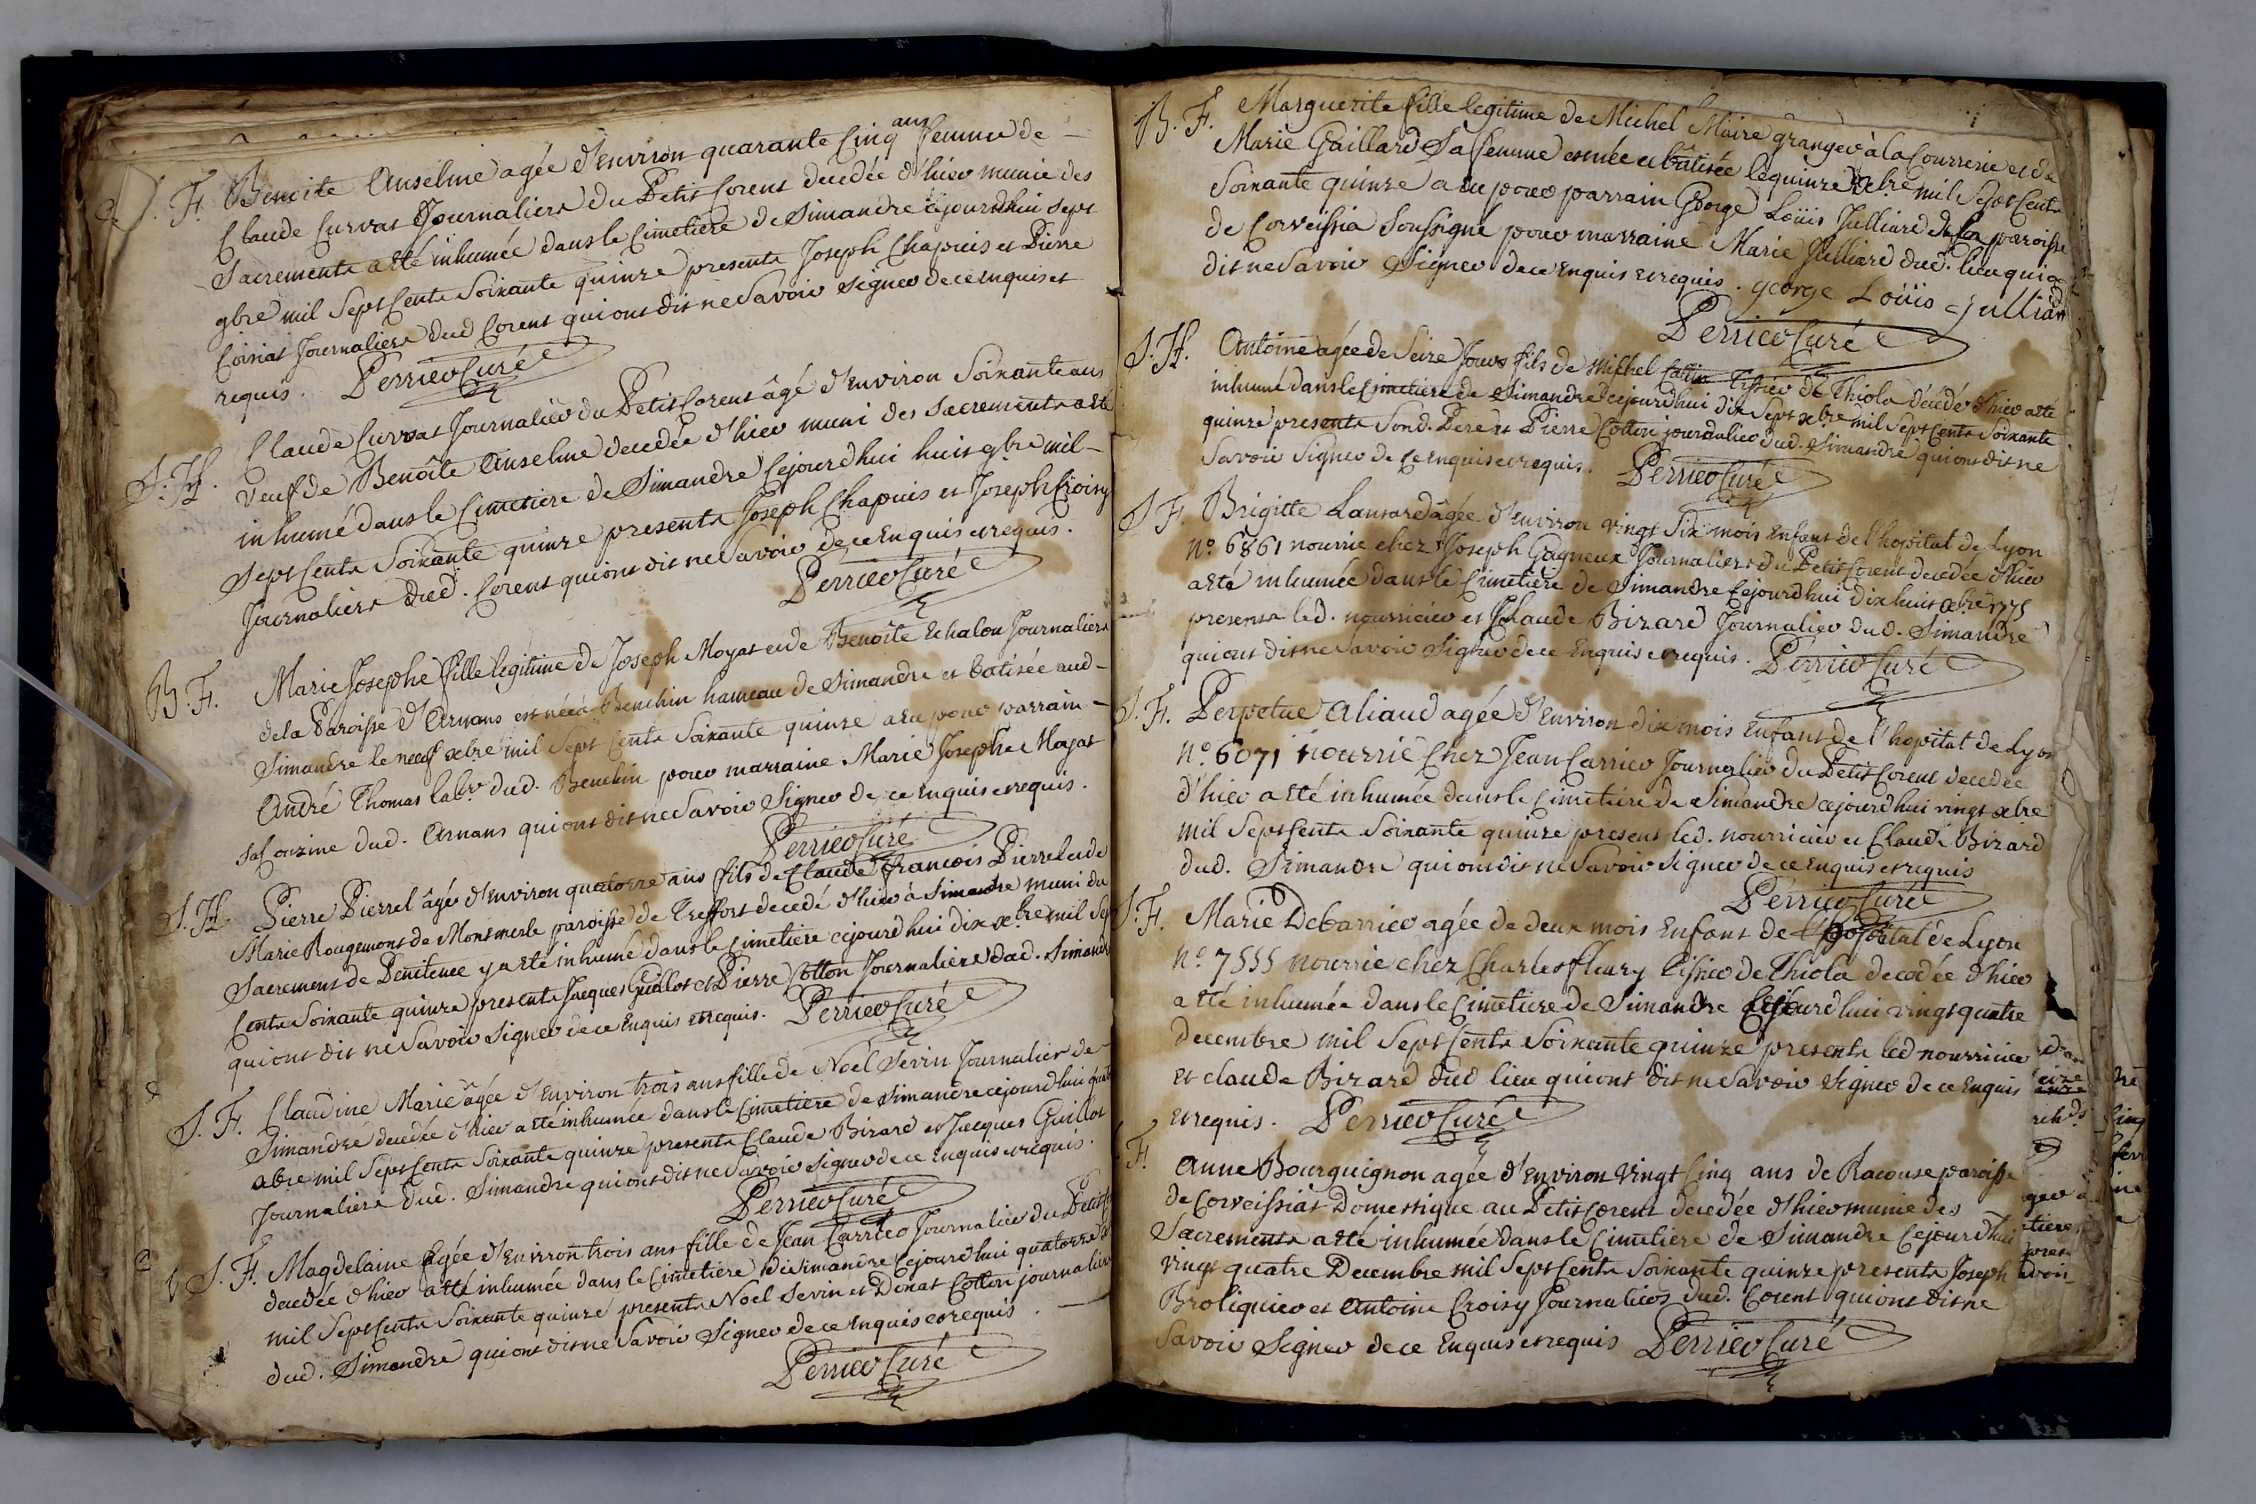 S. F. Benoite Anselme agée d'Environ quarante Cinq ans femme de
Claude Curvat Journaliers du Petit Corent decedée d'hier munie des
Sacrements a eté inhumée dans le Cimetiere de Simandre cejourdhui sept
9bre mil Sept Cents Soixante quinze presents Joseph Chapuis et Pierre
Coisiat Journaliers dud Corent qui ont dit ne Savoir signer de ce enquis et
requis. Perrier Curé
S. H. Claude Curvat Journalier du Petit Corent âgé d'Environ Soixante ans
veuf de Benoîte Anselme decedée d'hier muni des Sacrements a eté
inhumé dans le Cimetiere de Simandre Cejourdhui huit 9bre mil
Sept Cents Soixante quinze presents Joseph Chapuis et Joseph Croisy
Journaliers dud. Corent qui ont dit ne Savoir de ce Enquis et requis.
Perrier Curé
B. F. Marie Josephe fille legitime de Joseph Moyat et de Benoîte Echalon Journaliers
de la Paroisse d'Arnans est née à Benchin hameau de Simandre et batisée aud
Simandre le neuf xbre mil Sept Cents Soixante quinze a eu pour parrain
André Thomas labr. dud. Benchin pour marraine Marie Josephe Moyat
sa Cousine dud. Arnans qui ont dit ne Savoir Signer de ce enquis et requis.
Perrier Curé
S. H. Pierre Pierrel âgé d'Environ quatorze ans fils de Claude François Pierrel et de
Marie Rougemont de Montmerle paroisse de Treffort decedé d'hier à Simandre muni du
Sacrement de Penitence y a eté inhumé dans le Cimetiere cejourd'hui dix xbre mil Sept
Cents Soixante quinze presents Jacques Guillot et Pierre Cotton Journaliers dud. Simandre
qui ont dit ne Savoir Signer de ce Enquis et requis. Perrier Curé
S. F. Claudine Marie âgée d'Environ trois ans fille de Noel Sevin Journalier de
Simandre decedée d'hier a eté inhumée dans le Cimetiere de Simandre cejourd'hui
xbre mil Sept Cents Soixante quinze presents Claude Bizard et Jacques Guillot
Journaliers dud. Simandre qui ont dit ne Savoir Signer de ce enquis et requis.
Perrier Curé
S. F. Magdelaine Agée d'Environ trois ans fille de Jean Carrier Journalier du Petit
decedée d'hier a eté inhumée dans le Cimetiere de Simandre Cejourd'hui quatorze
mil Sept Cents Soixante quinze presents Noel Sevin et Donat Cotton journaliers
dud. Simandre qui ont dit ne Savoir Signer de ce enquis et requis.
Perrier Curé
B. F. Marguerite fille legitime de Michel Maire granger à la Courrerie et de
Marie Gaillard Sa femme est née et bâtisée le quinze xbre mil Sept Cents
Soixante quinze a eu pour parrain George Loüis Julliard de la paroisse
de Corveissia Soussigné pour marraine Marie Julliard dud. lieu qui a
dit ne Savoir Signer de ce Enquis et requis. george Loüis Julliard
Perrier Curé
S. H. Antoine agée de Seize Jours fils de Michel Cattin Tissier de Thiola décédé d'hier a eté
inhumé dans le Cimetiere de Simandre cejourd'hui dix Sept xbre mil Sept Cents Soixante
quinze presents Sond. Pere et Pierre Cotton journalier dud. Simandre qui ont dit ne
Savoir Signer de Ce enquis et requis. Perrier Curé
S. F. Brigitte Lansard âgée d'Environ vingt Six mois Enfant de l'hopital de Lyon
No. 6861 nourrie chez Joseph Gagneux Journaliers du Petit Corent decedée d'hier
a eté inhumée dans le Cimetiere de Simandre Cejourd'hui dix huit xbre 1775
presents led. nourricier et Claude Bizard Journalier dud. Simandre
qui ont dit ne Savoir Signer de ce Enquis et requis. Perrier Curé
S. F. Perpetue Aliaud agée d'Environ dix mois Enfant de l'hopital de Lyon
No. 6071 nourrie Chez Jean Carrier Journalier du Petit Corent decedée
d'hier a eté inhumée dans le Cimetiere de Simandre cejourd'hui vingt xbre
mil Sept Cents Soixante quinze present led. nourricier et Claude Bizard
dud. Simandre qui ont dit ne Savoir Signer de ce enquis et requis
Perrier Curé
S. F. Marie Debarrier agée de deux mois Enfant de l'hopital de Lyon
No. 7555 nourrie chez Charles fleury Tissier de Thiola decedée d'hier
a eté inhumée dans le Cimetiere de Simandre Cejourd'hui vingt quatre
decembre mil Sept Cents Soixante quinze presents led nourricier
et claude Bizard dud lieu qui ont dit ne Savoir Signer de ce Enquis
et requis. Perrier Curé
F. Anne Bourguignon agée d'Environ Vingt Cinq ans de Racouse paroisse
de Corveissiat Domestique au Petit Corent decedée d'hier munie des
Sacrements a eté inhumée dans le Cimetiere de Simandre Cejourd'hui
vingt quatre Decembre mil Sept Cents Soixante quinze presents Joseph
Broliquier et Antoine Croisy Journaliers dud. Corent qui ont dit ne
Savoir Signer de ce Enquis et requis Perrier Curé